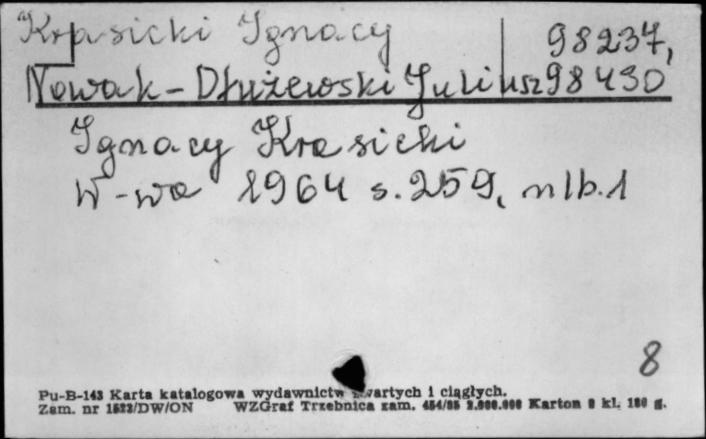 Krasicki Ignacy 98237,
Nowak-Dłużewski Juliusz 98430
Ignacy Krasicki
W-wa 1964 s. 259, nlb. 1
8
Pu-B-143 Karta katalogowa wydawnictw zwartych i ciągłych.
Zam. nr 1523/DW/ON WZGraf Trzebnica zam. 454/85 2.000.000 Karton kl. 180 g.